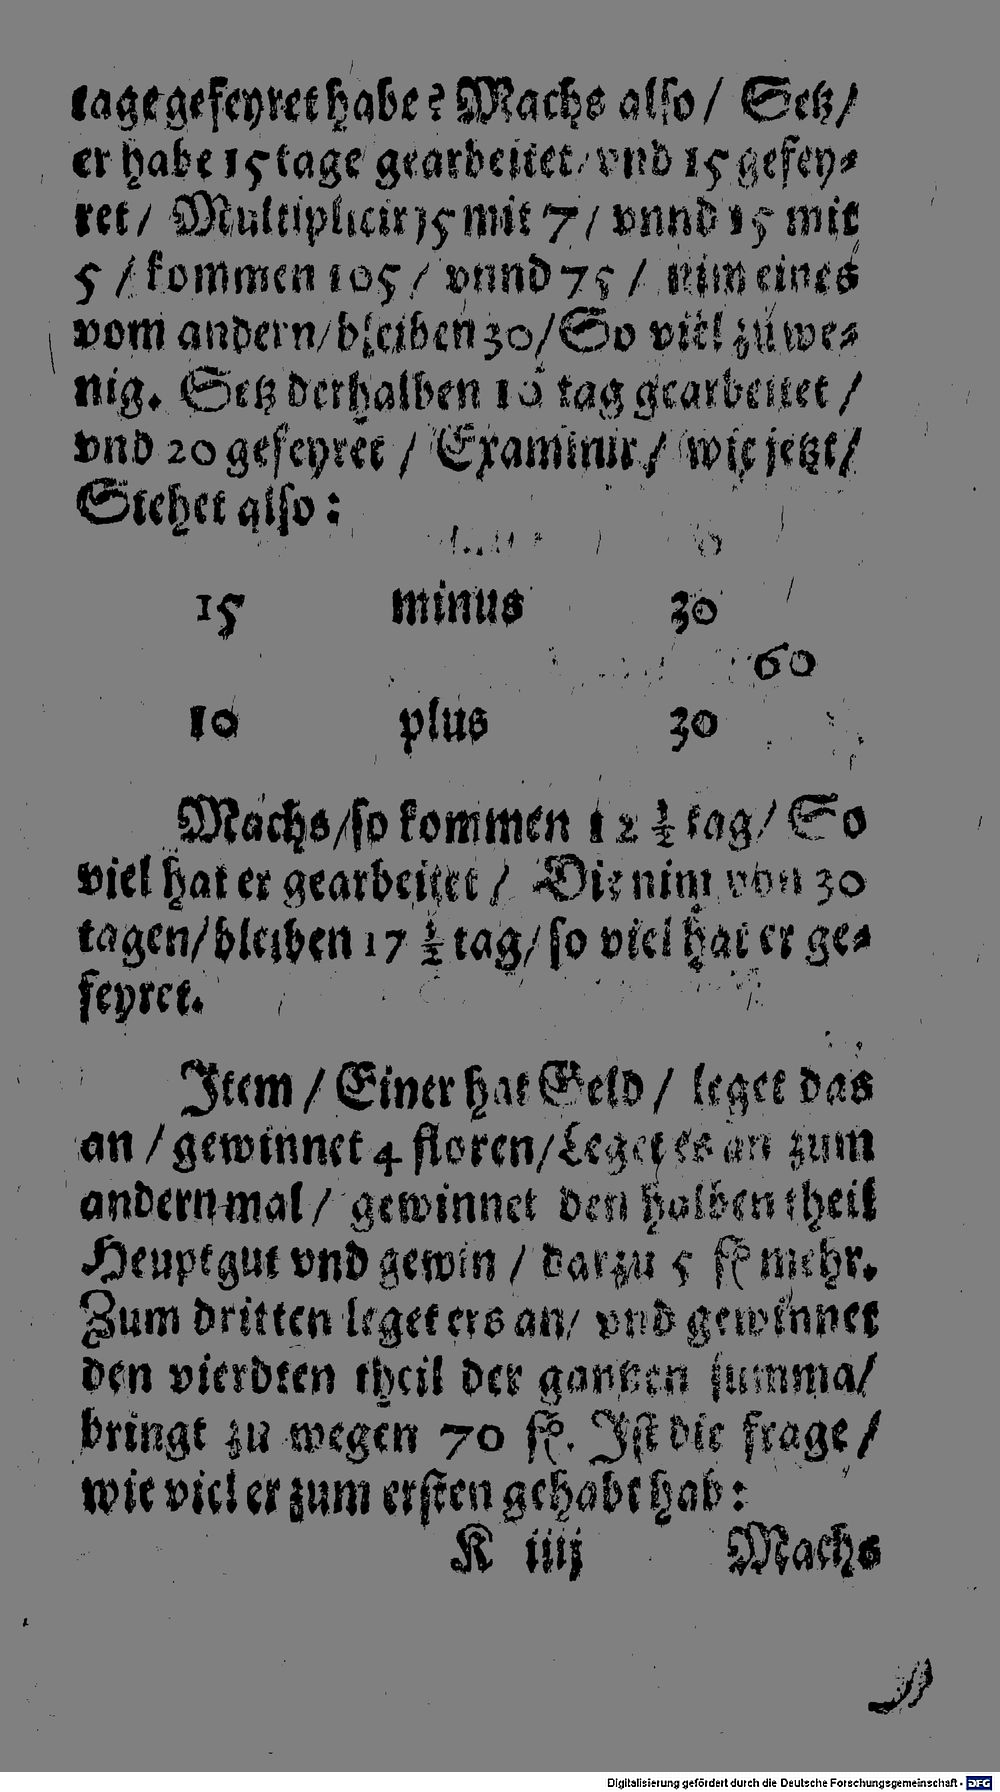 tage gefeyret habe? Machs also / Setz /
er habe 15 tage gearbeitet / vnd 15 gefey⸗
ret / Multiplicir 15 mit 7 / vnnd 15 mit
5 / kommen 105 / vnnd 75 / nim eines
vom andern / bleiben 30 / So viel zu we⸗
nig. Setz derhalben 10 tag gearbeitet /
vnd 20 gefeyret / Examinir / wie jetzt /
Stehet also:
15 minus 30
60
10 plus 30
Machs / so kommen 12 ½ tag / So
viel hat er gearbeitet / Die nim von 30
tagen / bleiben 17 ½ tag / so viel hat er ge⸗
feyret.
Item / Einer hat Geld / leget das
an / gewinnet 4 floren / Leget es an zum
andern mal / gewinnet den halben theil
Heuptgut vnd gewin / darzu 5 fl mehr.
Zum dritten leget ers an / vnd gewinnet
den vierdten theil der gantzen summa /
bringt zu wegen 70 fl. Ist die frage /
wie viel er zum ersten gehabt hab:
K iiij Machs
Digitalisierung gefördert durch die Deutsche Forschungsgemeinschaft - DFG